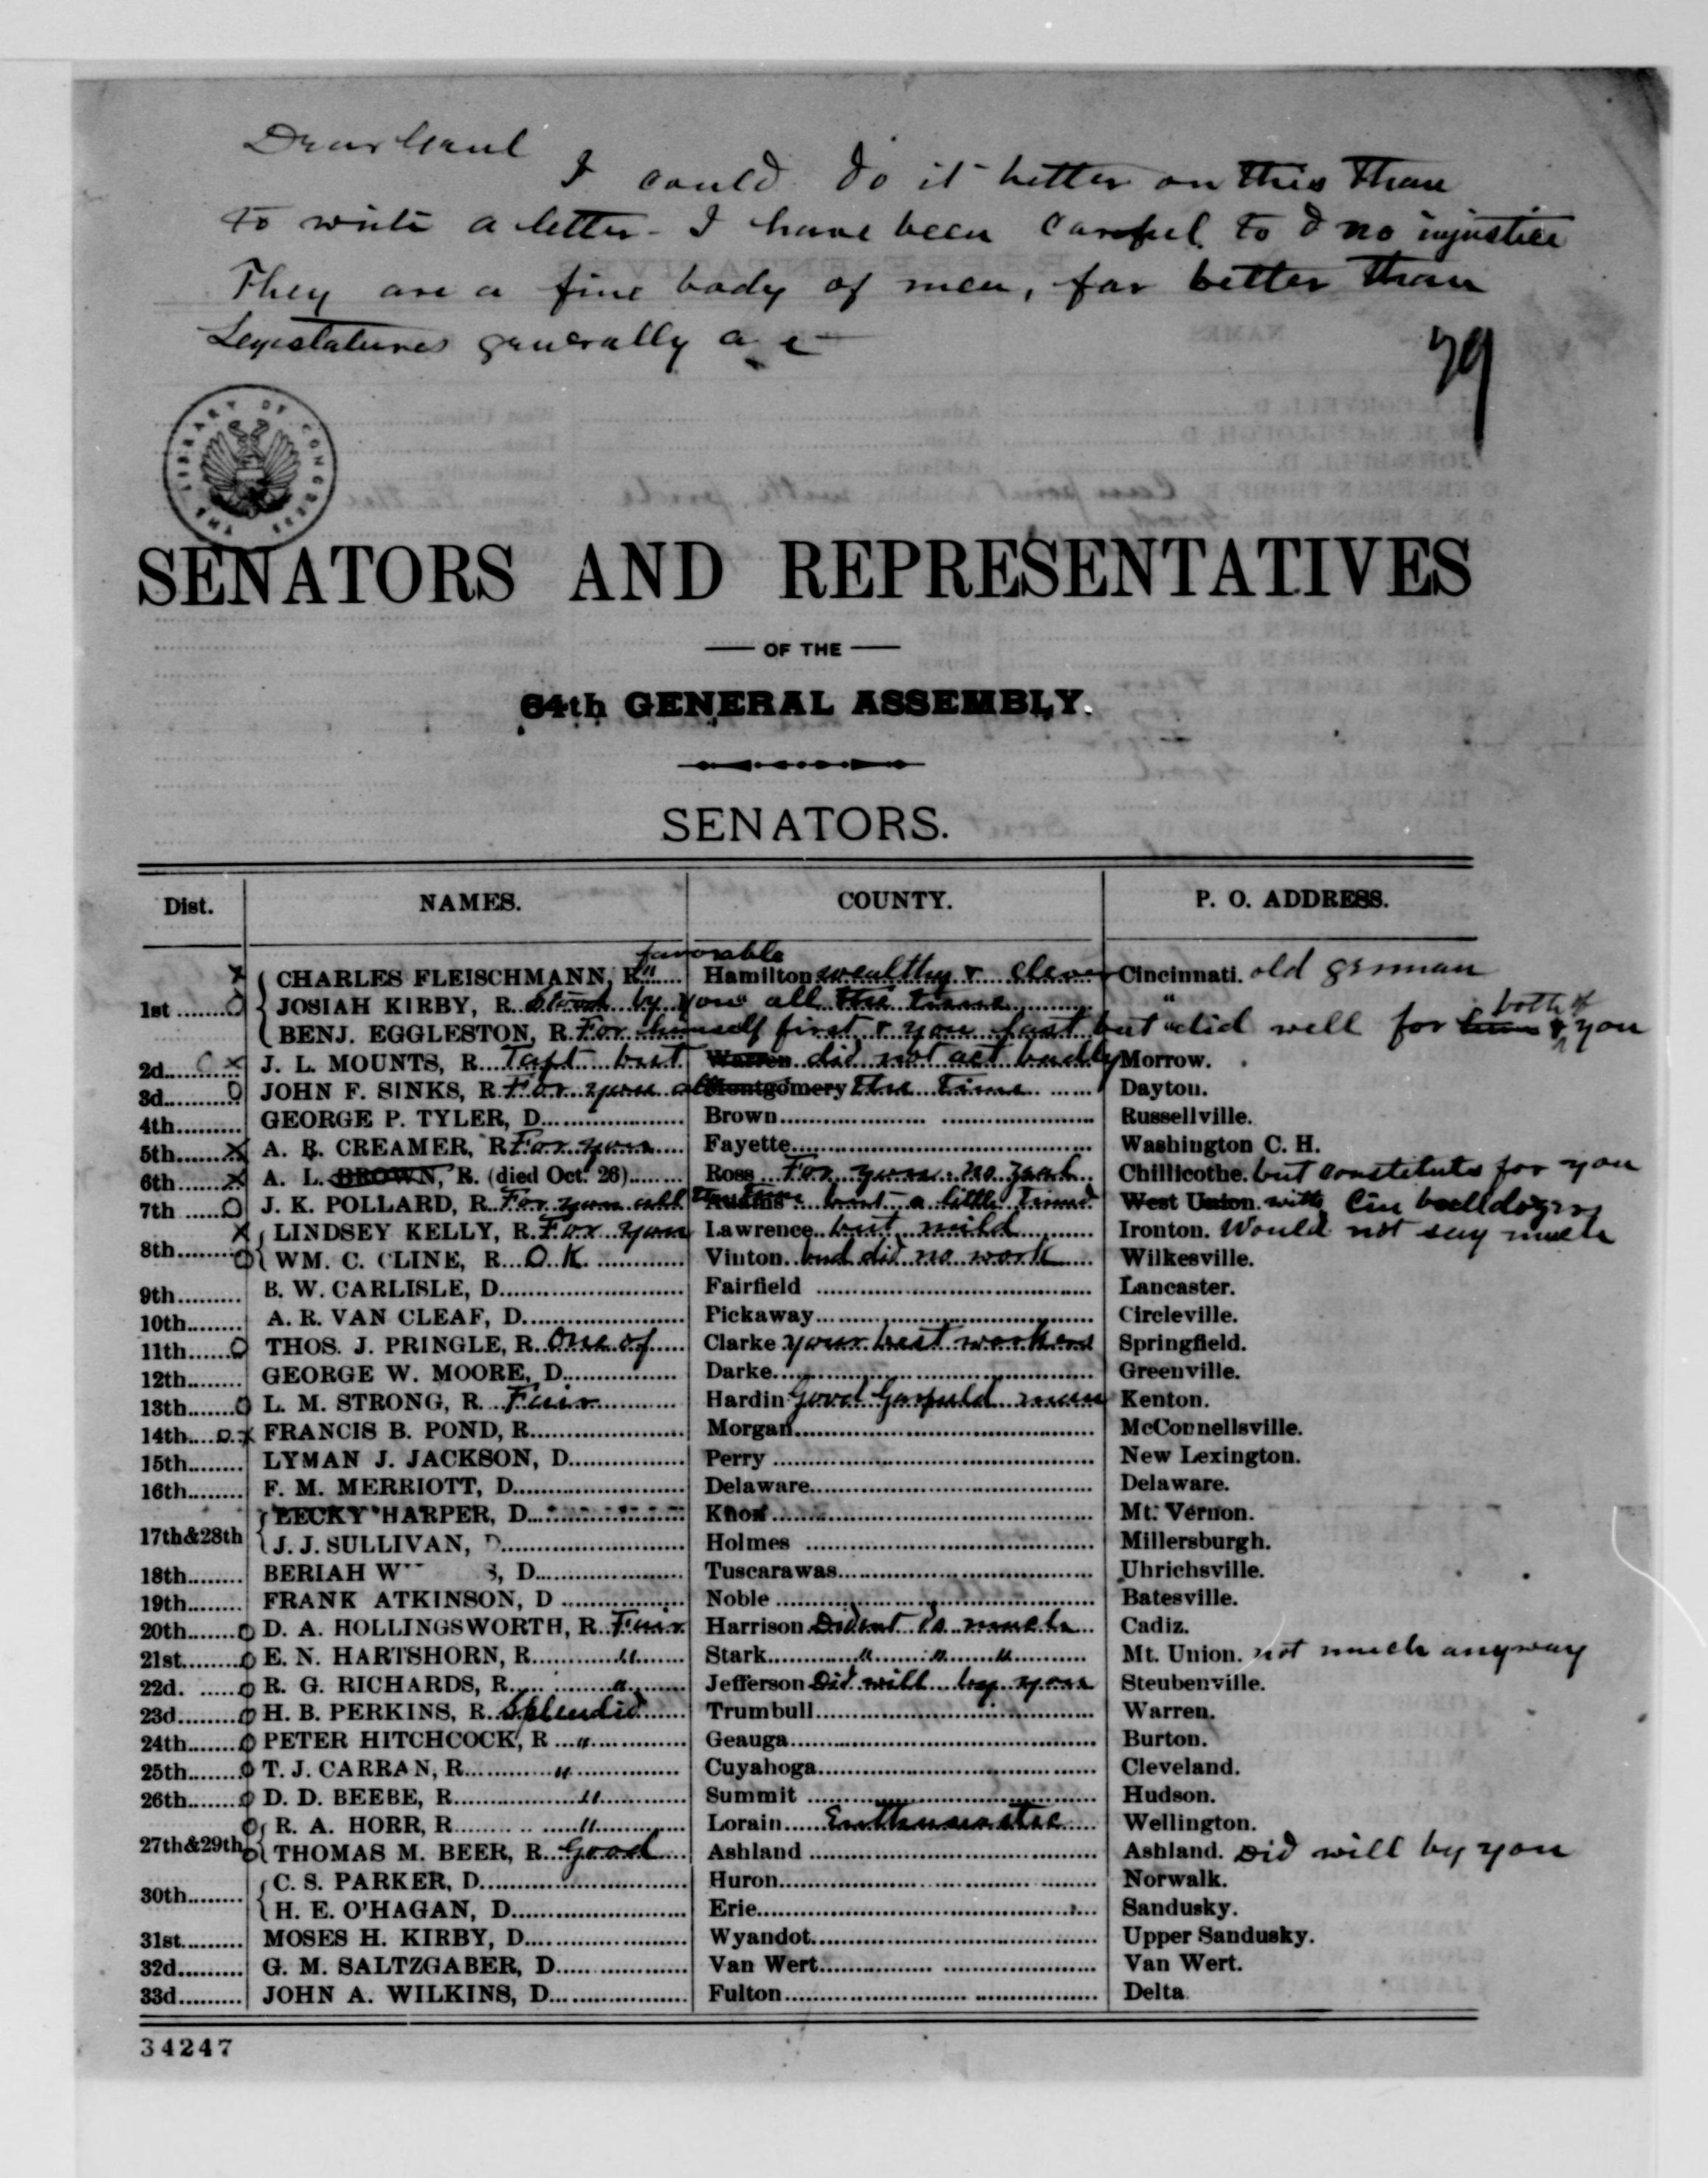 Dear Genl
I could do it better on this than
to write a letter - I have been careful to d no injustice
They are a fine body of men, far better than
Legislatures generally are
79
THE LIBRARY OF CONGRESS
SENATORS AND REPRESENTATIVES
OF THE
64th GENERAL ASSEMBLY.
SENATORS.
Dist. NAMES. COUNTY. P. O. ADDRESS.
favorable
x CHARLES FLEISCHMANN, R. " Hamilton wealthy & clever Cincinnati. old german
1st O JOSIAH KIRBY, R. Stood by you all the time "
both of
BENJ. EGGLESTON, R. For himself first & you last but did well for & you
2d x J. L. MOUNTS, R. Taft but Warren did not act badly Morrow.
3d O JOHN F. SINKS, R. For you all Montgomery the time Dayton.
4th GEORGE P. TYLER, D. Brown Russellville.
5th x A. R. CREAMER, R For you Fayette Washington C. H.
6th x A. L. BROWN, R. (died Oct. 26) Ross For you no zeal Chillicothe. but constituts for you
7th O J. K. POLLARD, R. For you all the time Adams but a little timid West Union. with Cin bulldozers
8th x LINDSEY KELLY, R. For you Lawrence but mild Ironton. Would not say much
O WM. C. CLINE, R. O.K. Vinton but did no work Wilkesville.
9th B. W. CARLISLE, D. Fairfield Lancaster.
10th A. R. VAN CLEAF, D. Pickaway Circleville.
11th O THOS. J. PRINGLE, R. One of Clarke your best workers Springfield.
12th GEORGE W. MOORE, D. Darke Greenville.
13th O L. M. STRONG, R. Fair Hardin Good Garfield man Kenton.
14th o x FRANCIS B. POND, R. Morgan McConnellsville.
15th LYMAN J. JACKSON, D. Perry New Lexington.
16th F. M. MERRIOTT, D. Delaware Delaware.
17th&28th BECKY HARPER, D. Knox Mt. Vernon.
J. J. SULLIVAN, D Holmes Millersburgh.
18th BERIAH W S, D. Tuscarawas Uhrichsville.
19th FRANK ATKINSON, D Noble Batesville.
20th O D. A. HOLLINGSWORTH, R. Fair Harrison Didnt do much Cadiz.
21st O E. N. HARTSHORN, R. " Stark " " " Mt. Union. not much anyway
22d. O R. G. RICHARDS, R. " Jefferson Did well by you Steubenville.
23d O H. B. PERKINS, R. Splendid Trumbull Warren.
24th O PETER HITCHCOCK, R " Geauga Burton.
25th O T. J. CARRAN, R. " Cuyahoga Cleveland.
26th O D. D. BEEBE, R. " Summit Hudson.
O R. A. HORR, R. " Lorain Enthusiastic Wellington.
27th&29th O THOMAS M. BEER, R. Good Ashland Ashland. Did well by you
30th C. S. PARKER, D. Huron Norwalk.
H. E. O'HAGAN, D. Erie Sandusky.
31st MOSES H. KIRBY, D. Wyandot Upper Sandusky.
32d G. M. SALTZGABER, D. Van Wert Van Wert.
33d JOHN A. WILKINS, D. Fulton Delta
34247